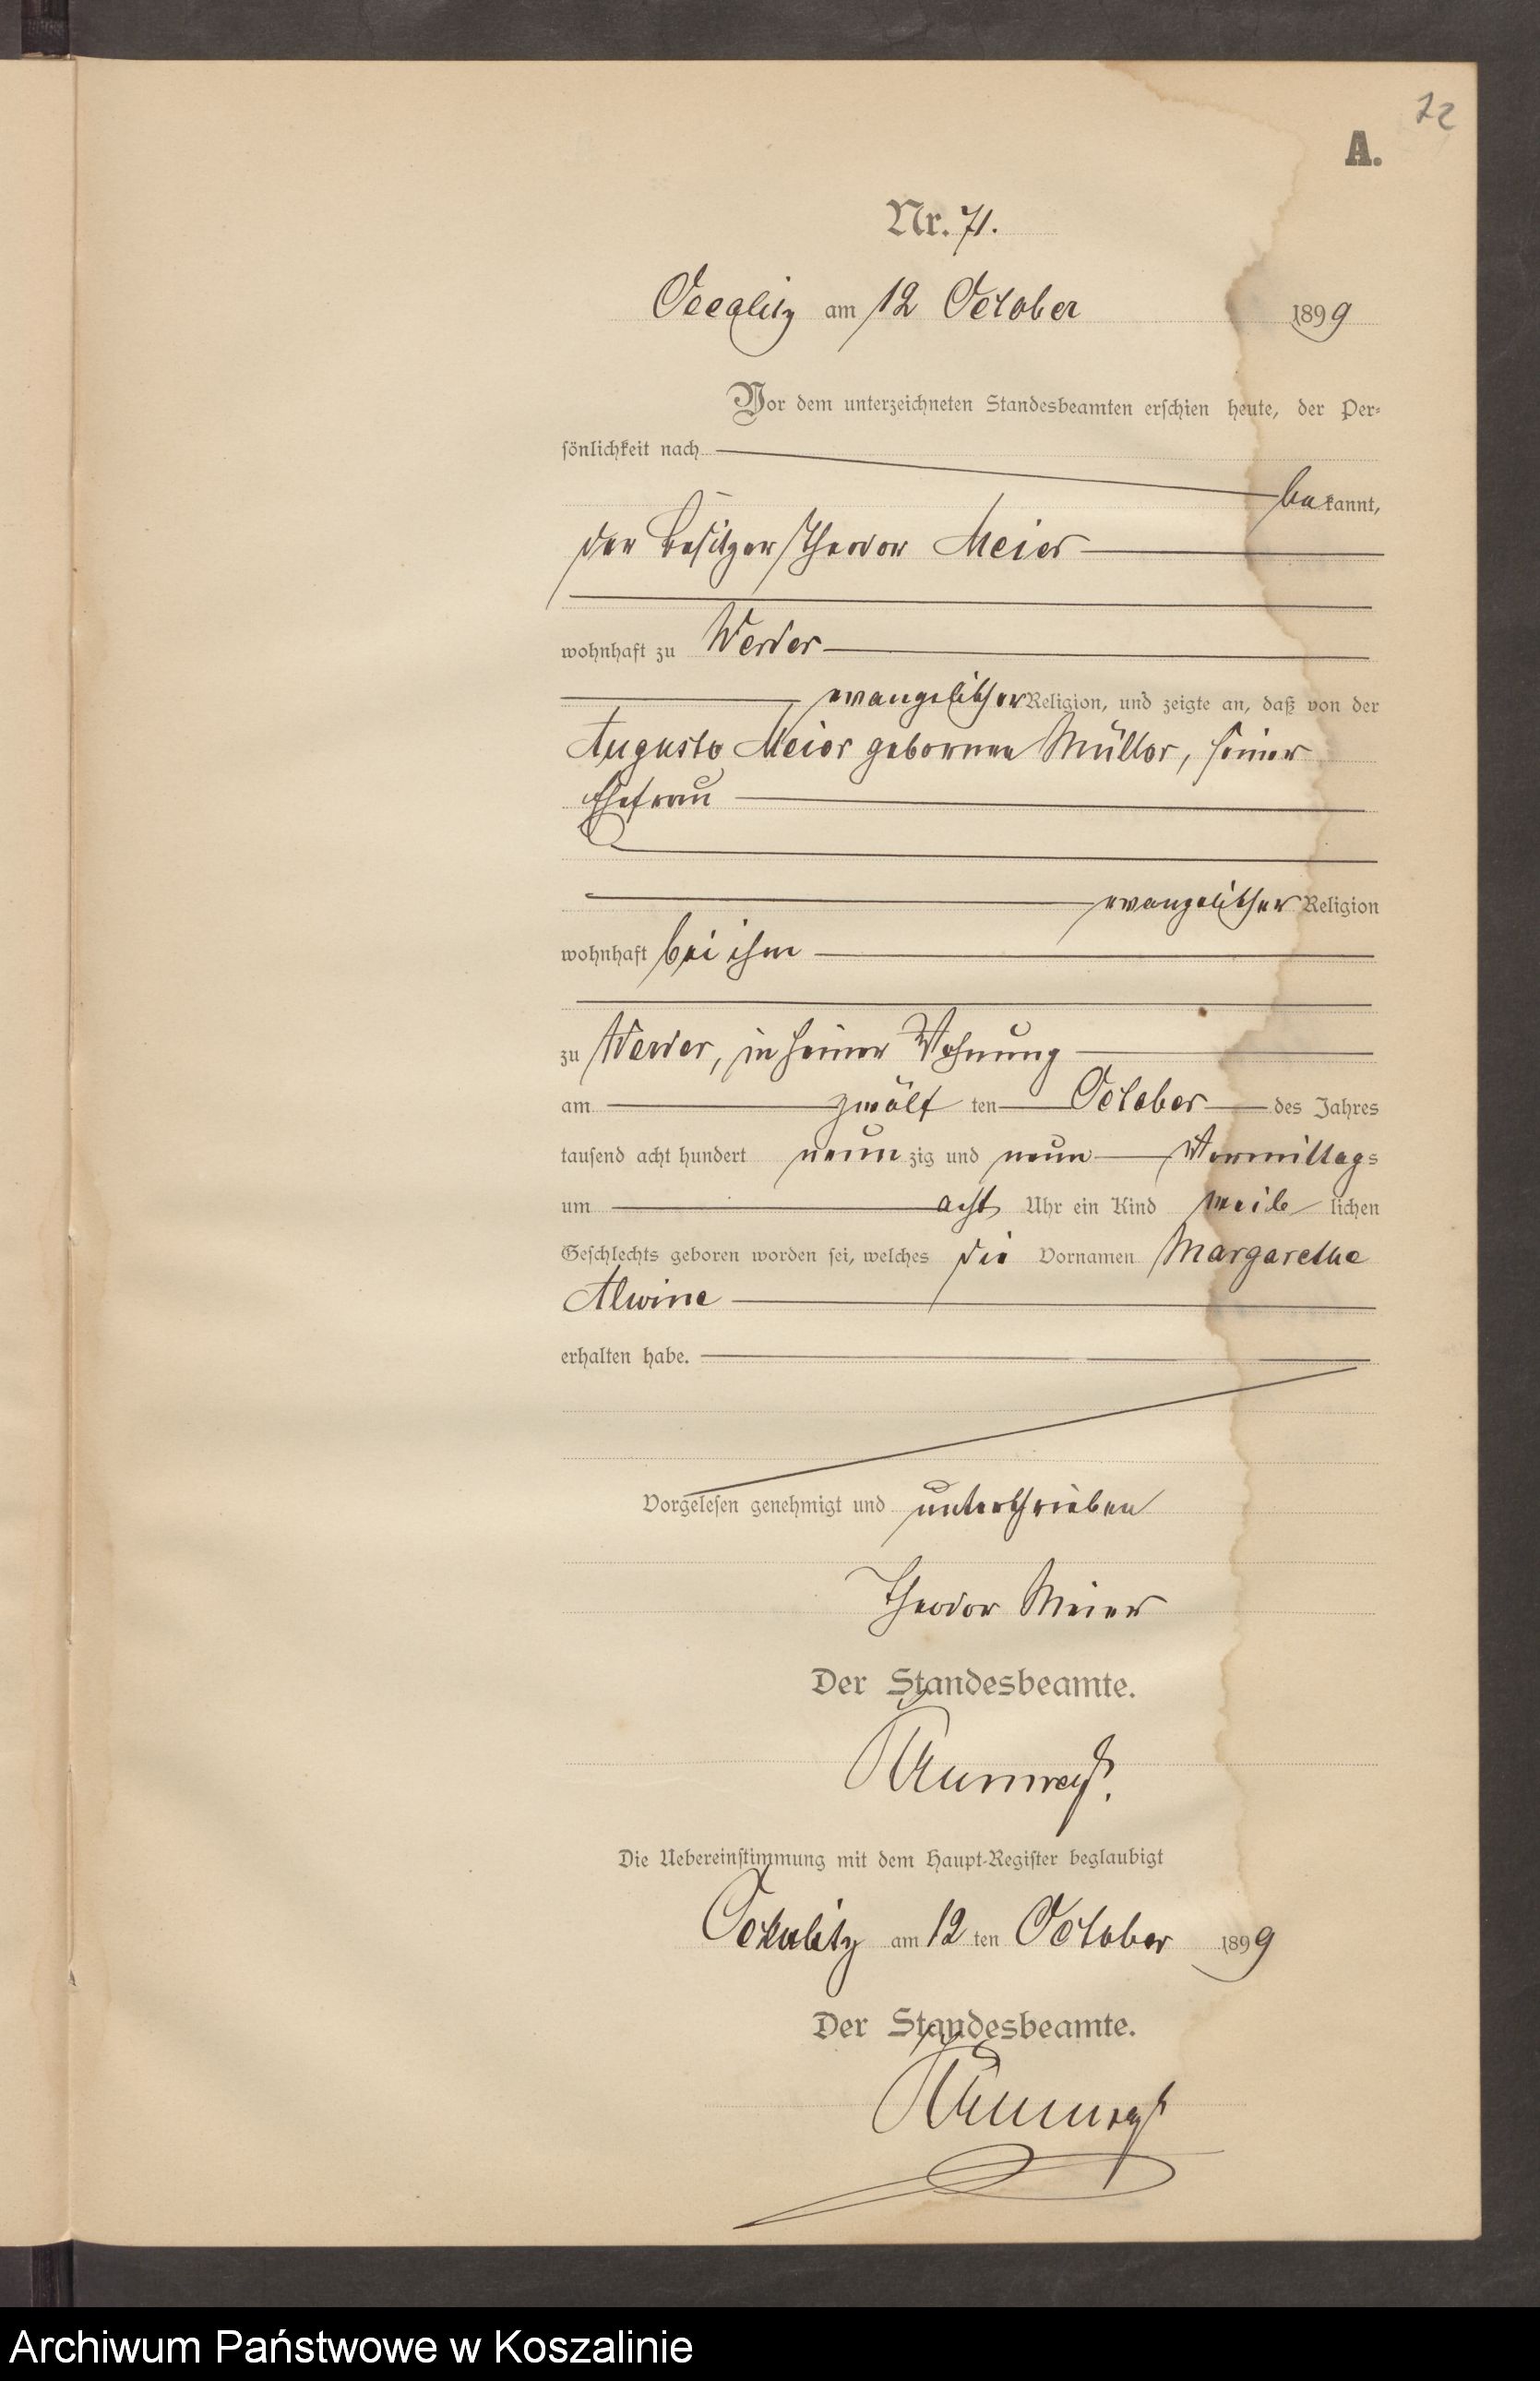 72
A.
Nr. 71.
am 12 October 1899
Vor dem unterzeichneten Standesbeamten erschien heute, der Per-
sönlichkeit nach
bekannt,
der Besitzer Theodor Meier
wohnhaft zu Werder
evangelischer Religion, und zeigte an, daß von der
Auguste Meier geborenen Müller, seiner
Ehefrau
evangelischer Religion
wohnhaft bei ihm
zu Werder, in seiner Wohnung
am zwölf ten October des Jahres
tausend acht hundert neun zig und neun Vormittags
um acht Uhr ein Kind weib lichen
Geschlechts geboren worden sei, welches die Vornamen Margarethe
Alwine
erhalten habe.
Vorgelesen genehmigt und unterschrieben
Theodor Meier
Der Standesbeamte.
Die Uebereinstimmung mit dem Haupt-Register beglaubigt
am 12 ten October 1899
Der Standesbeamte.
Archiwum Państwowe w Koszalinie